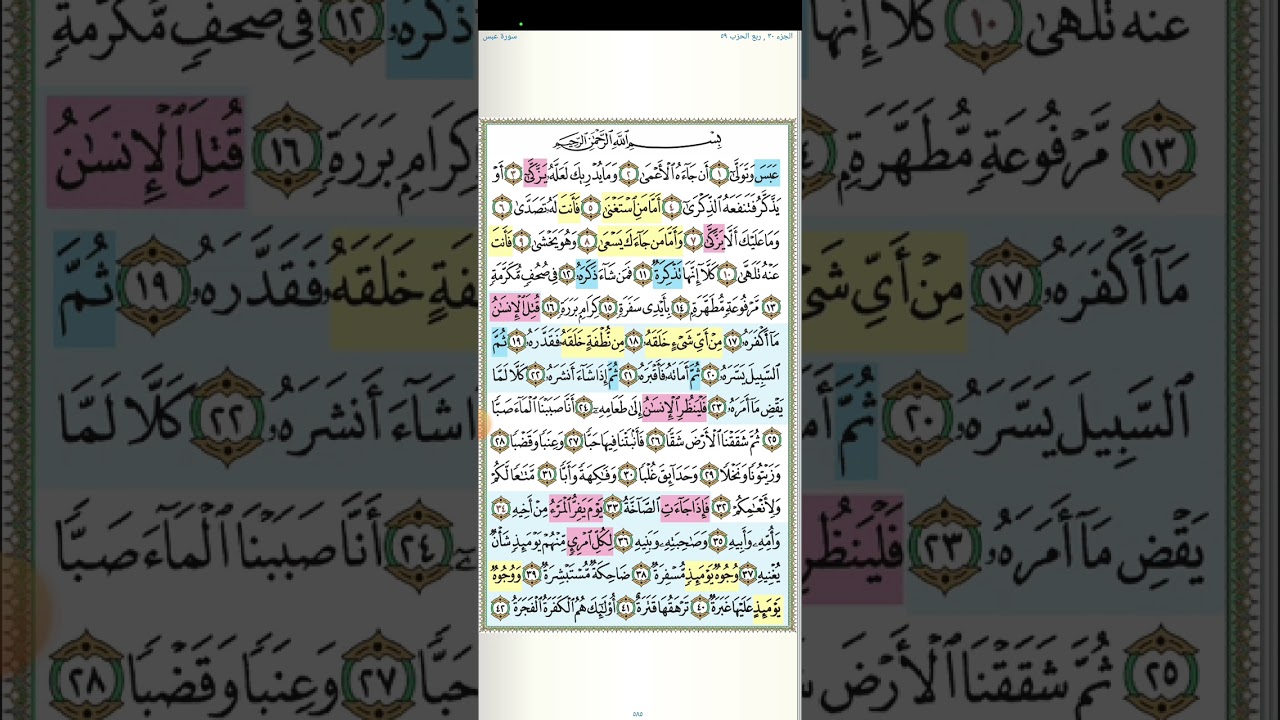 الجزء ٣٠ , ربع الحزب ٥٩
سورة عبس
بِسْمِ ٱللَّهِ ٱلرَّحْمَٰنِ ٱلرَّحِيمِ
عَبَسَ وَتَوَلَّىٰٓ ١ أَن جَآءَهُ ٱلْأَعْمَىٰ ٢ وَمَا يُدْرِيكَ لَعَلَّهُۥ يَزَّكَّىٰٓ ٣ أَوْ
يَذَّكَّرُ فَتَنفَعَهُ ٱلذِّكْرَىٰٓ ٤ أَمَّا مَنِ ٱسْتَغْنَىٰ ٥ فَأَنتَ لَهُۥ تَصَدَّىٰ ٦
وَمَا عَلَيْكَ أَلَّا يَزَّكَّىٰ ٧ وَأَمَّا مَن جَآءَكَ يَسْعَىٰ ٨ وَهُوَ يَخْشَىٰ ٩ فَأَنتَ
عَنْهُ تَلَهَّىٰ ١٠ كَلَّآ إِنَّهَا تَذْكِرَةٌ ١١ فَمَن شَآءَ ذَكَرَهُۥ ١٢ فِى صُحُفٍ مُّكَرَّمَةٍ
١٣ مَّرْفُوعَةٍ مُّطَهَّرَةٍۭ ١٤ بِأَيْدِى سَفَرَةٍ ١٥ كِرَامٍۭ بَرَرَةٍ ١٦ قُتِلَ ٱلْإِنسَٰنُ
مَآ أَكْفَرَهُۥ ١٧ مِنْ أَىِّ شَىْءٍ خَلَقَهُۥ ١٨ مِن نُّطْفَةٍ خَلَقَهُۥ فَقَدَّرَهُۥ ١٩ ثُمَّ
ٱلسَّبِيلَ يَسَّرَهُۥ ٢٠ ثُمَّ أَمَاتَهُۥ فَأَقْبَرَهُۥ ٢١ ثُمَّ إِذَا شَآءَ أَنشَرَهُۥ ٢٢ كَلَّا لَمَّا
يَقْضِ مَآ أَمَرَهُۥ ٢٣ فَلْيَنظُرِ ٱلْإِنسَٰنُ إِلَىٰ طَعَامِهِۦٓ ٢٤ أَنَّا صَبَبْنَا ٱلْمَآءَ صَبًّا
٢٥ ثُمَّ شَقَقْنَا ٱلْأَرْضَ شَقًّا ٢٦ فَأَنۢبَتْنَا فِيهَا حَبًّا ٢٧ وَعِنَبًا وَقَضْبًا ٢٨
وَزَيْتُونًا وَنَخْلًا ٢٩ وَحَدَآئِقَ غُلْبًا ٣٠ وَفَٰكِهَةً وَأَبًّا ٣١ مَّتَٰعًا لَّكُمْ
وَلِأَنْعَٰمِكُمْ ٣٢ فَإِذَا جَآءَتِ ٱلصَّآخَّةُ ٣٣ يَوْمَ يَفِرُّ ٱلْمَرْءُ مِنْ أَخِيهِ ٣٤
وَأُمِّهِۦ وَأَبِيهِ ٣٥ وَصَٰحِبَتِهِۦ وَبَنِيهِ ٣٦ لِكُلِّ ٱمْرِئٍ مِّنْهُمْ يَوْمَئِذٍ شَأْنٌ
يُغْنِيهِ ٣٧ وُجُوهٌ يَوْمَئِذٍ مُّسْفِرَةٌ ٣٨ ضَاحِكَةٌ مُّسْتَبْشِرَةٌ ٣٩ وَوُجُوهٌ
يَوْمَئِذٍ عَلَيْهَا غَبَرَةٌ ٤٠ تَرْهَقُهَا قَتَرَةٌ ٤١ أُو۟لَٰٓئِكَ هُمُ ٱلْكَفَرَةُ ٱلْفَجَرَةُ ٤٢
٥٨٥